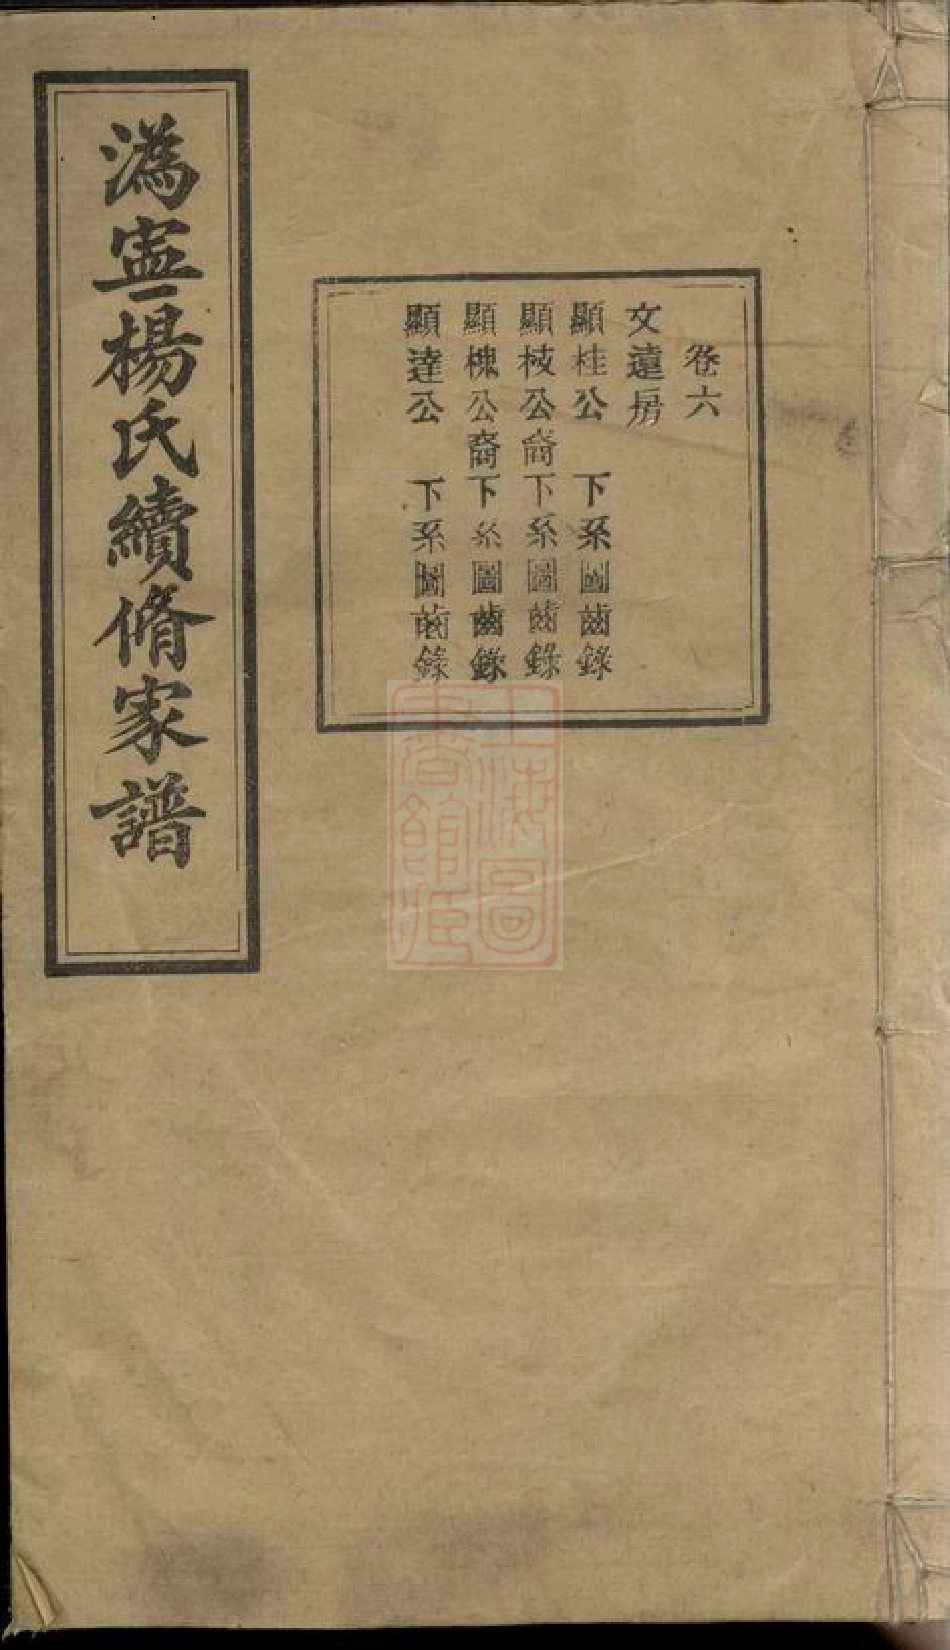 卷六
文遠房
顯桂公　下系圖齒錄
顯枝公裔下系圖齒錄
顯槐公裔下系圖齒錄
顯達公　下系圖齒錄
溈寍楊氏續脩家譜
上海圖書館藏